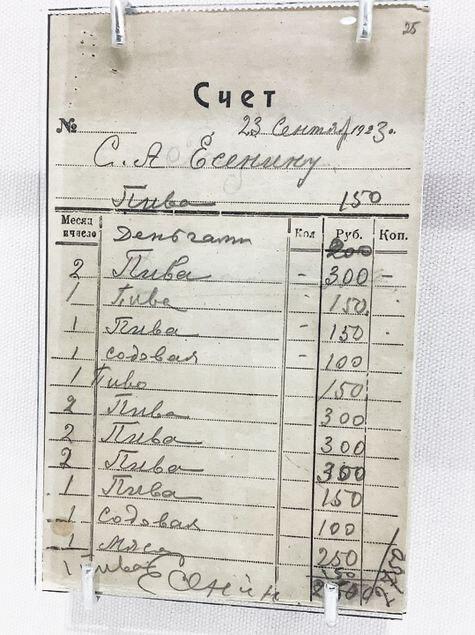 25
Счет
№ 23 Сентяб 1923г.
С. А Есенину
Пива 150
Месяц и число Кол Руб. Коп.
Деньгами 200
2 Пива - 300 -
1 Пива - 150
1 Пива - 150
1 содовая - 100
1 Пиво 150
2 Пива 300
2 Пива 300
2 Пива 300
1 Пива 150
1 Содовая 100
1 Мясо 250
1 пиво